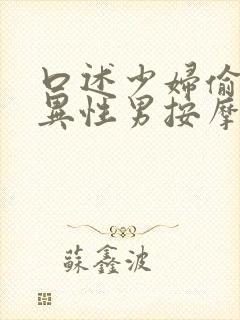 口述少婦偷
異性男按摩
蘇鑫波